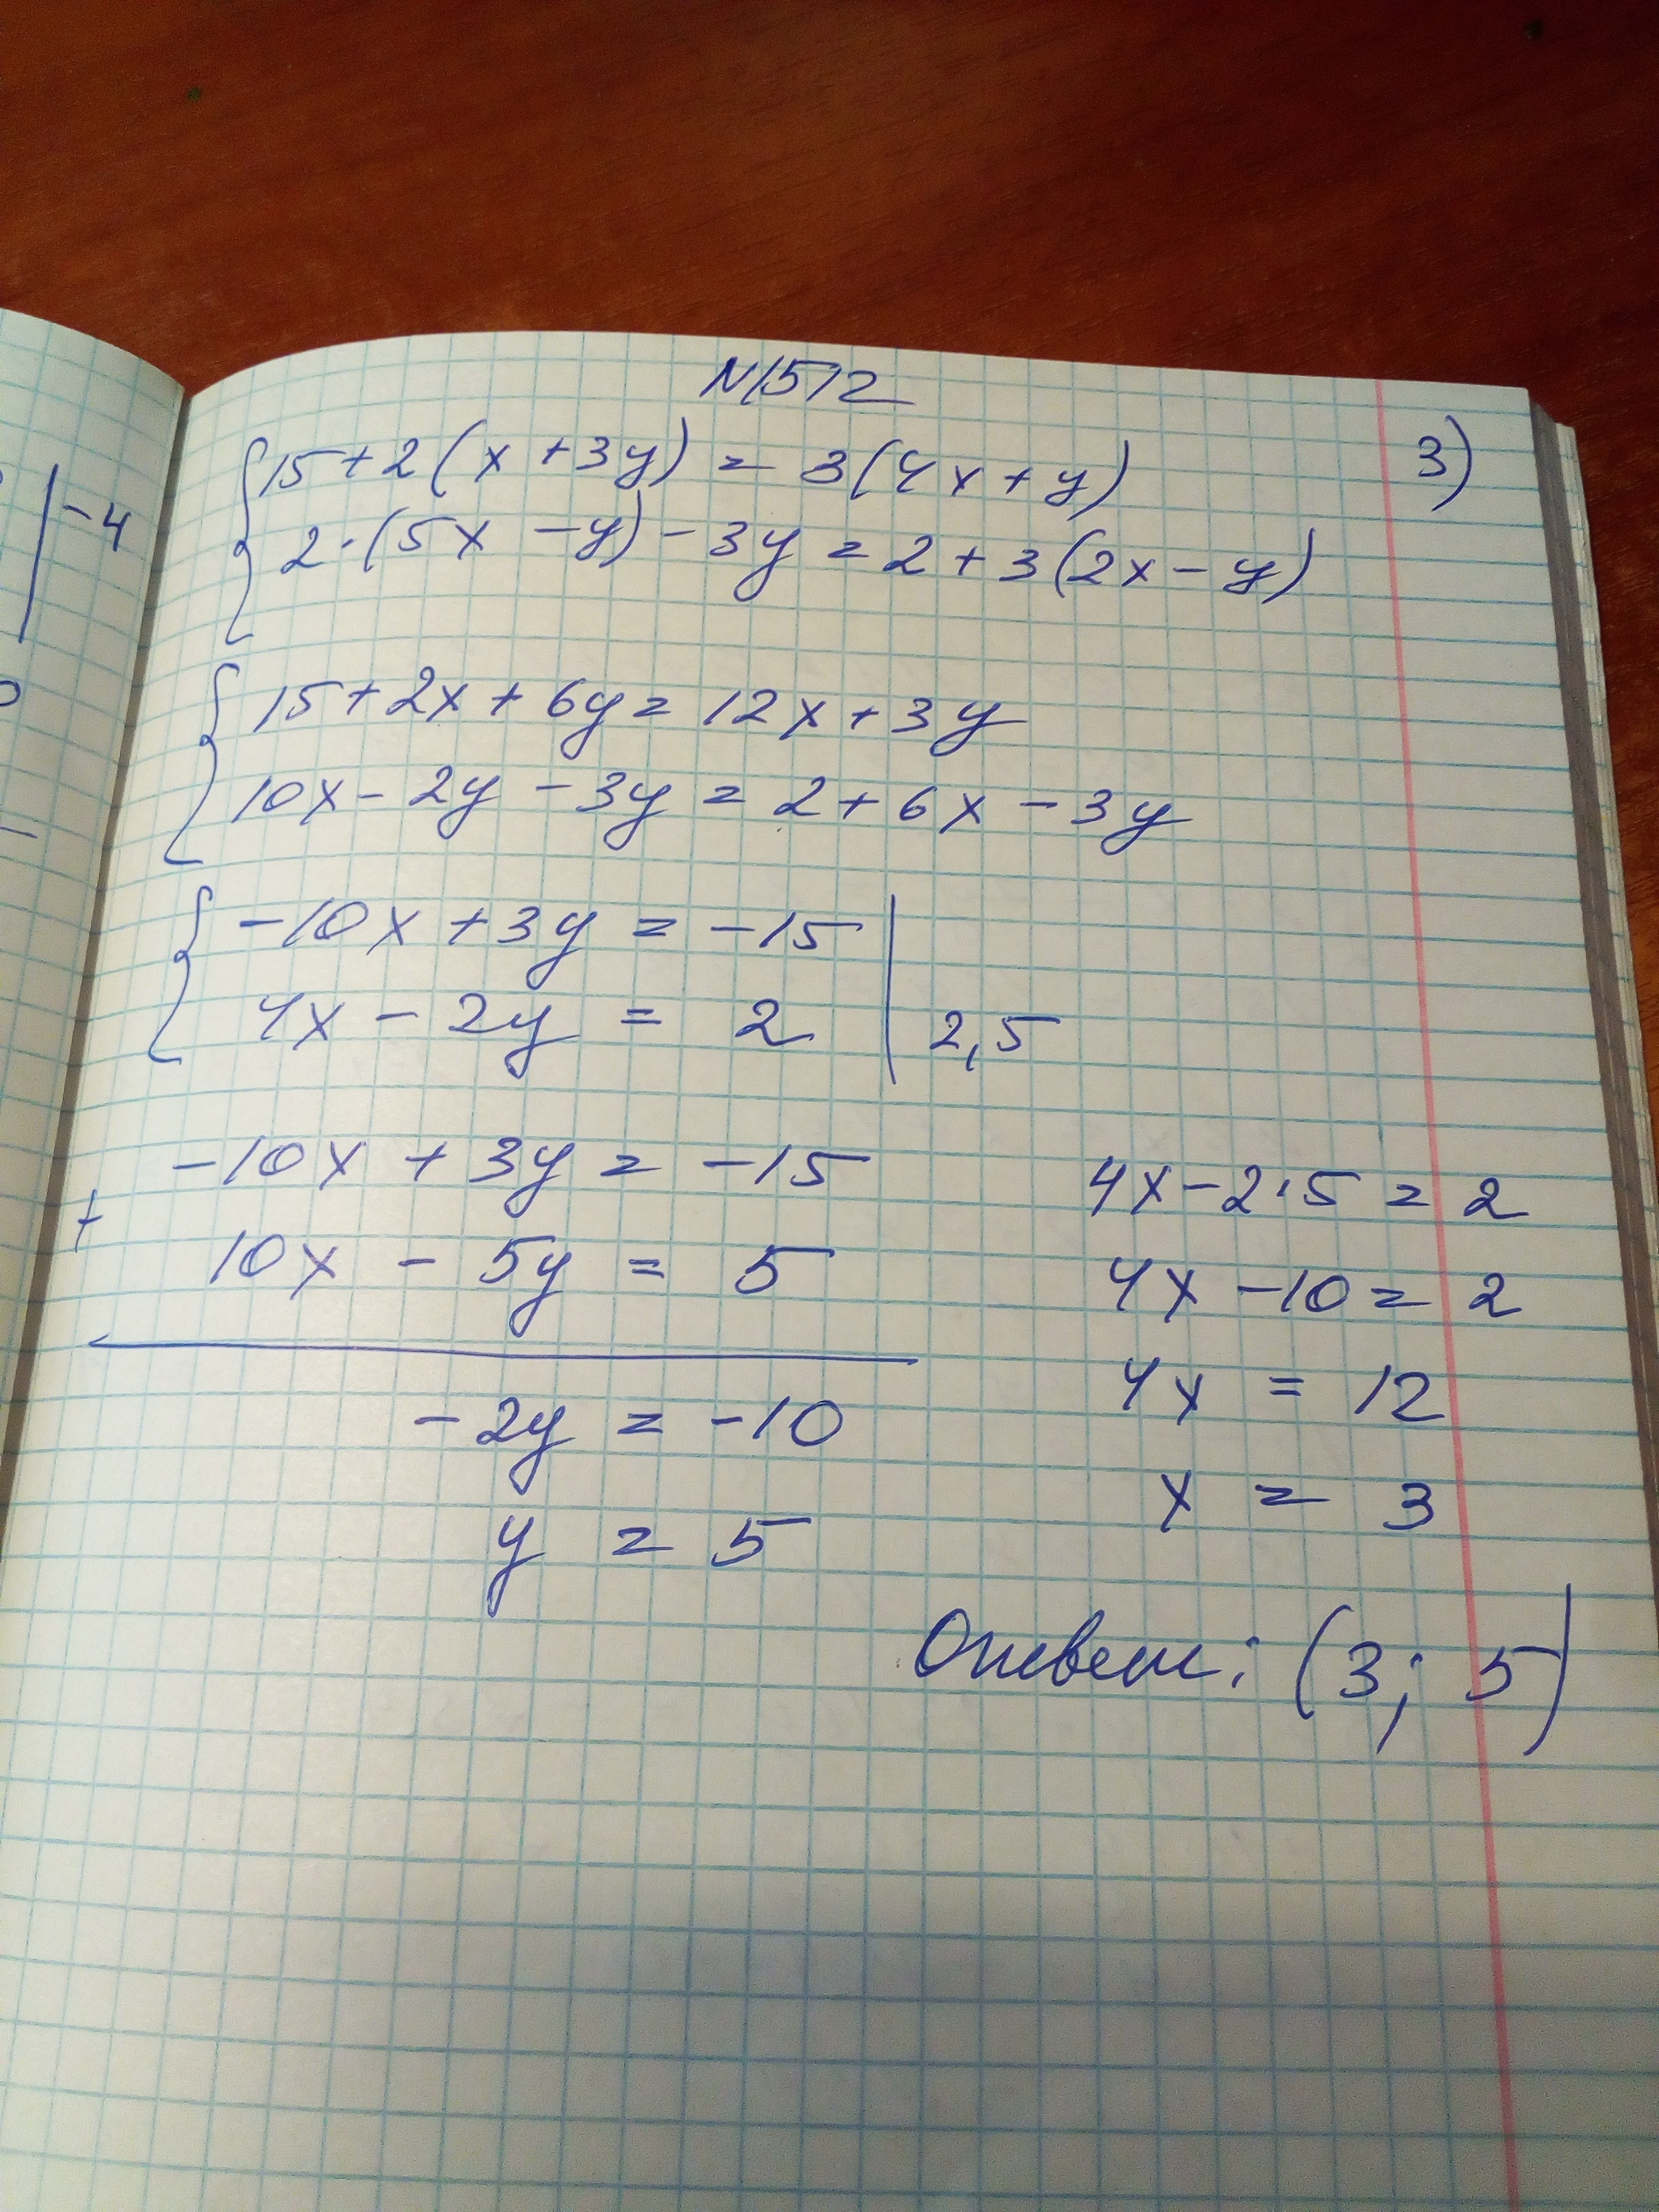 N1512
3)
15+2(x+3y)=3(4x+y)
2·(5x-y)-3y=2+3(2x-y)
-4
15+2x+6y=12x+3y
10x-2y-3y=2+6x-3y
-10x+3y=-15
4x-2y=2 | 2,5
-10x+3y=-15
+
10x-5y=5
-2y=-10
y=5
4x-2·5=2
4x-10=2
4x=12
x=3
Ответ: (3; 5)